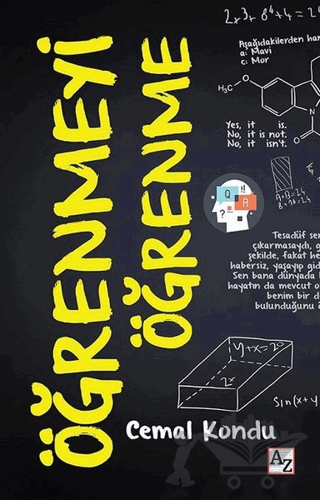 2x3x8⁴+4=24
Aşağıdakilerden har
a: Mavi
c: Mor
H₃C
O
N
O
Yes, it is.
No, it is not.
No, it isn't.
A+A=24
Q
A
?!
ÖĞRENMEYİ
ÖĞRENME
Tesadüf ser
çıkarmasaydı, a
şekilde, fakat he
habersiz, yaşayıp gid
Sen bana dünyada b
hayatın da mevcut o
benim bir d
bulunduğunu ö
y+x=20
2x
Sin(x+y
Cemal Kondu
AZ